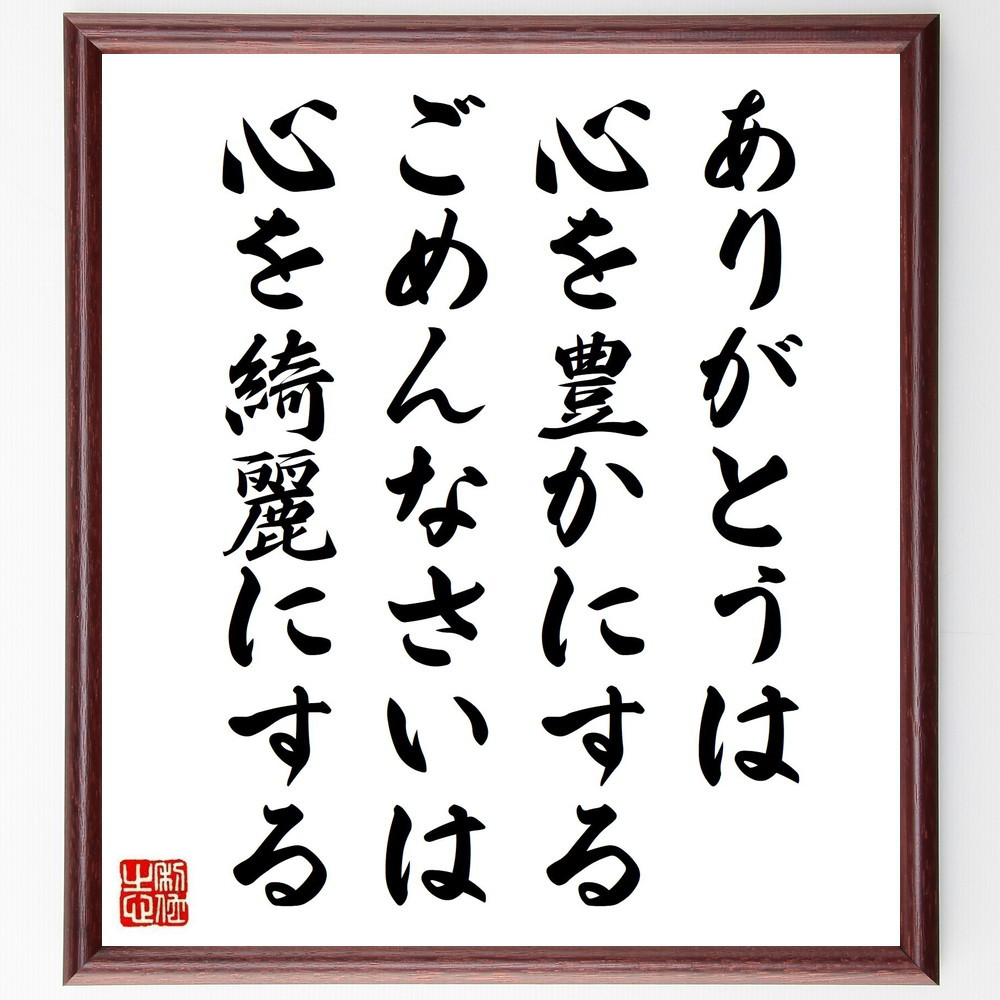 ありがとうは
心を豊かにする
ごめんなさいは
心を綺麗にする